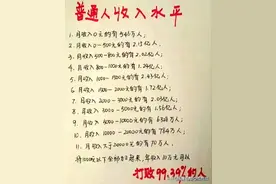 普通人收入水平
1. 月收入0元的有546万人
2. 月收入0-500元的有2.15亿人
3. 月收入500-800元的有2.02亿人
4. 月收入800-1000元的有1.24亿人
5. 月收入1000-1500元的有2.63亿人
6. 月收入1500-2000元的有1.72亿人
7. 月收入2000-3000元的有2.05亿人
8. 月收入3000-5000元的有1.56亿人
9. 月收入 5000-10000元的有
10. 月收入 10000-20000元的有
11. 月收入大于20000元的有70万人
打败99.39%的人